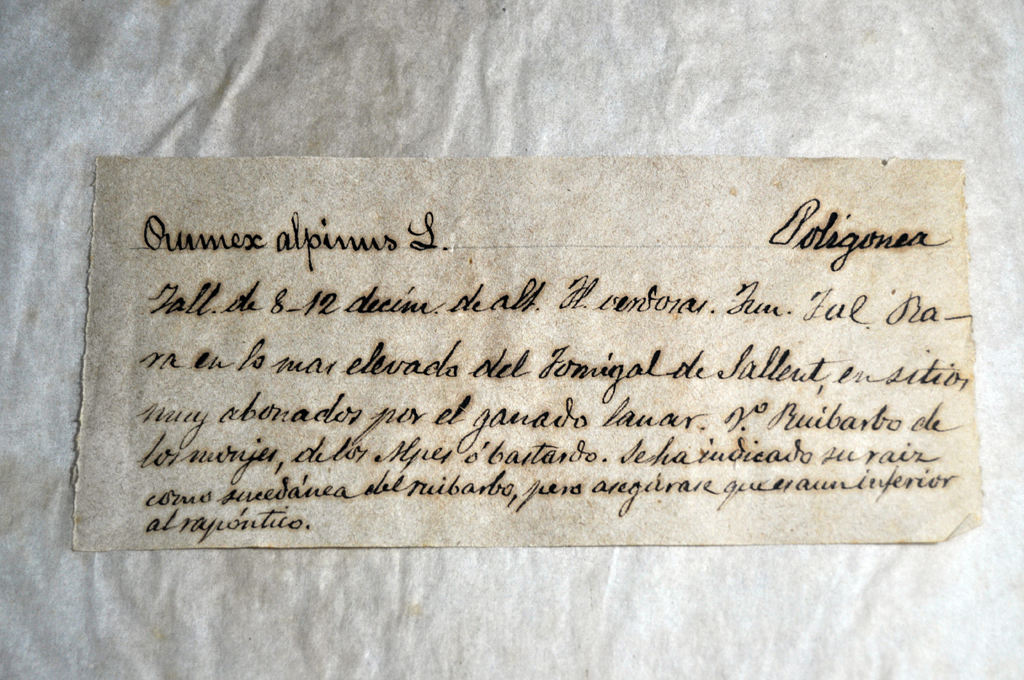 Rumex alpinus L. Poligonea
Tall. de 8-12 decím. de alt. Fl. verdosas. Jun. Jul. Ra-
ra en lo mas elevado del Formigal de Sallent, en sitios
muy abonados por el ganado lanar. V.º Ruibarbo de
los monjes, de los Alpes ó bastardo. Se ha indicado su raiz
como sucedánea del ruibarbo, pero asegúrase que es aun inferior
al rapóntico.